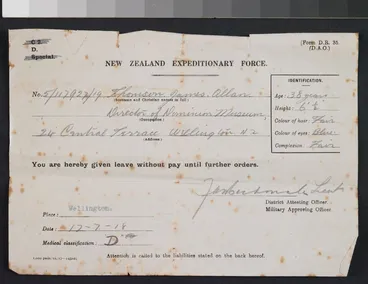 C1.
D.
Special.
(Form D.R. 35
(D.A.O.)
NEW ZEALAND EXPEDITIONARY FORCE.
No. Thomson James Allan
(Surname and Christian names in full.)
Director of Dominion Museum
(Occupation.)
24 Central Terrace Wellington N.Z
(Address.)
IDENTIFICATION.
Age: 38 years
Height: 6'
Colour of hair: Fair
Colour of eyes: Blue
Complexion: Fair
You are hereby given leave without pay until further orders.
Lieut
District Attesting Officer
Military Approving Officer
Place: Wellington.
Date: 17-7-18
Medical classification: D
Attention is called to the liabilities stated on the back hereof.